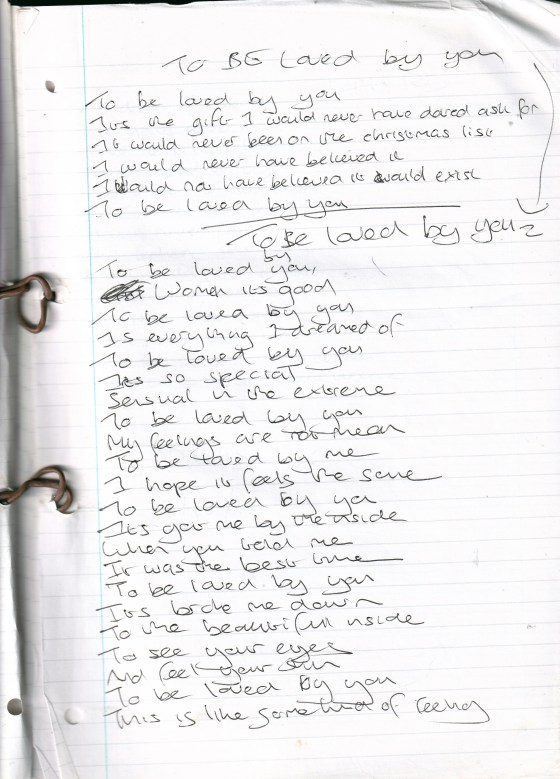 To BE Loved by you
To be loved by you
Its the gift I would never have dared ask for
It would never been on the christmas list
I would never have believed it
I would not have believed it would exist
To be loved by you
To Be loved by you 2
To be loved by you,
Women its good
To be loved by you
Is everything I dreamed of
To be loved by you
Its so special
Sensual in the extreme
To be loved by you
My feelings are not mean
To be loved by me
I hope it feels the same
To be loved by you
Its got me by the inside
When you told me
It was the best time
To be loved by you
Its broke me down
To the beautifull inside
To see your eyes
And feel your
To be loved by you
This is like some of feeling